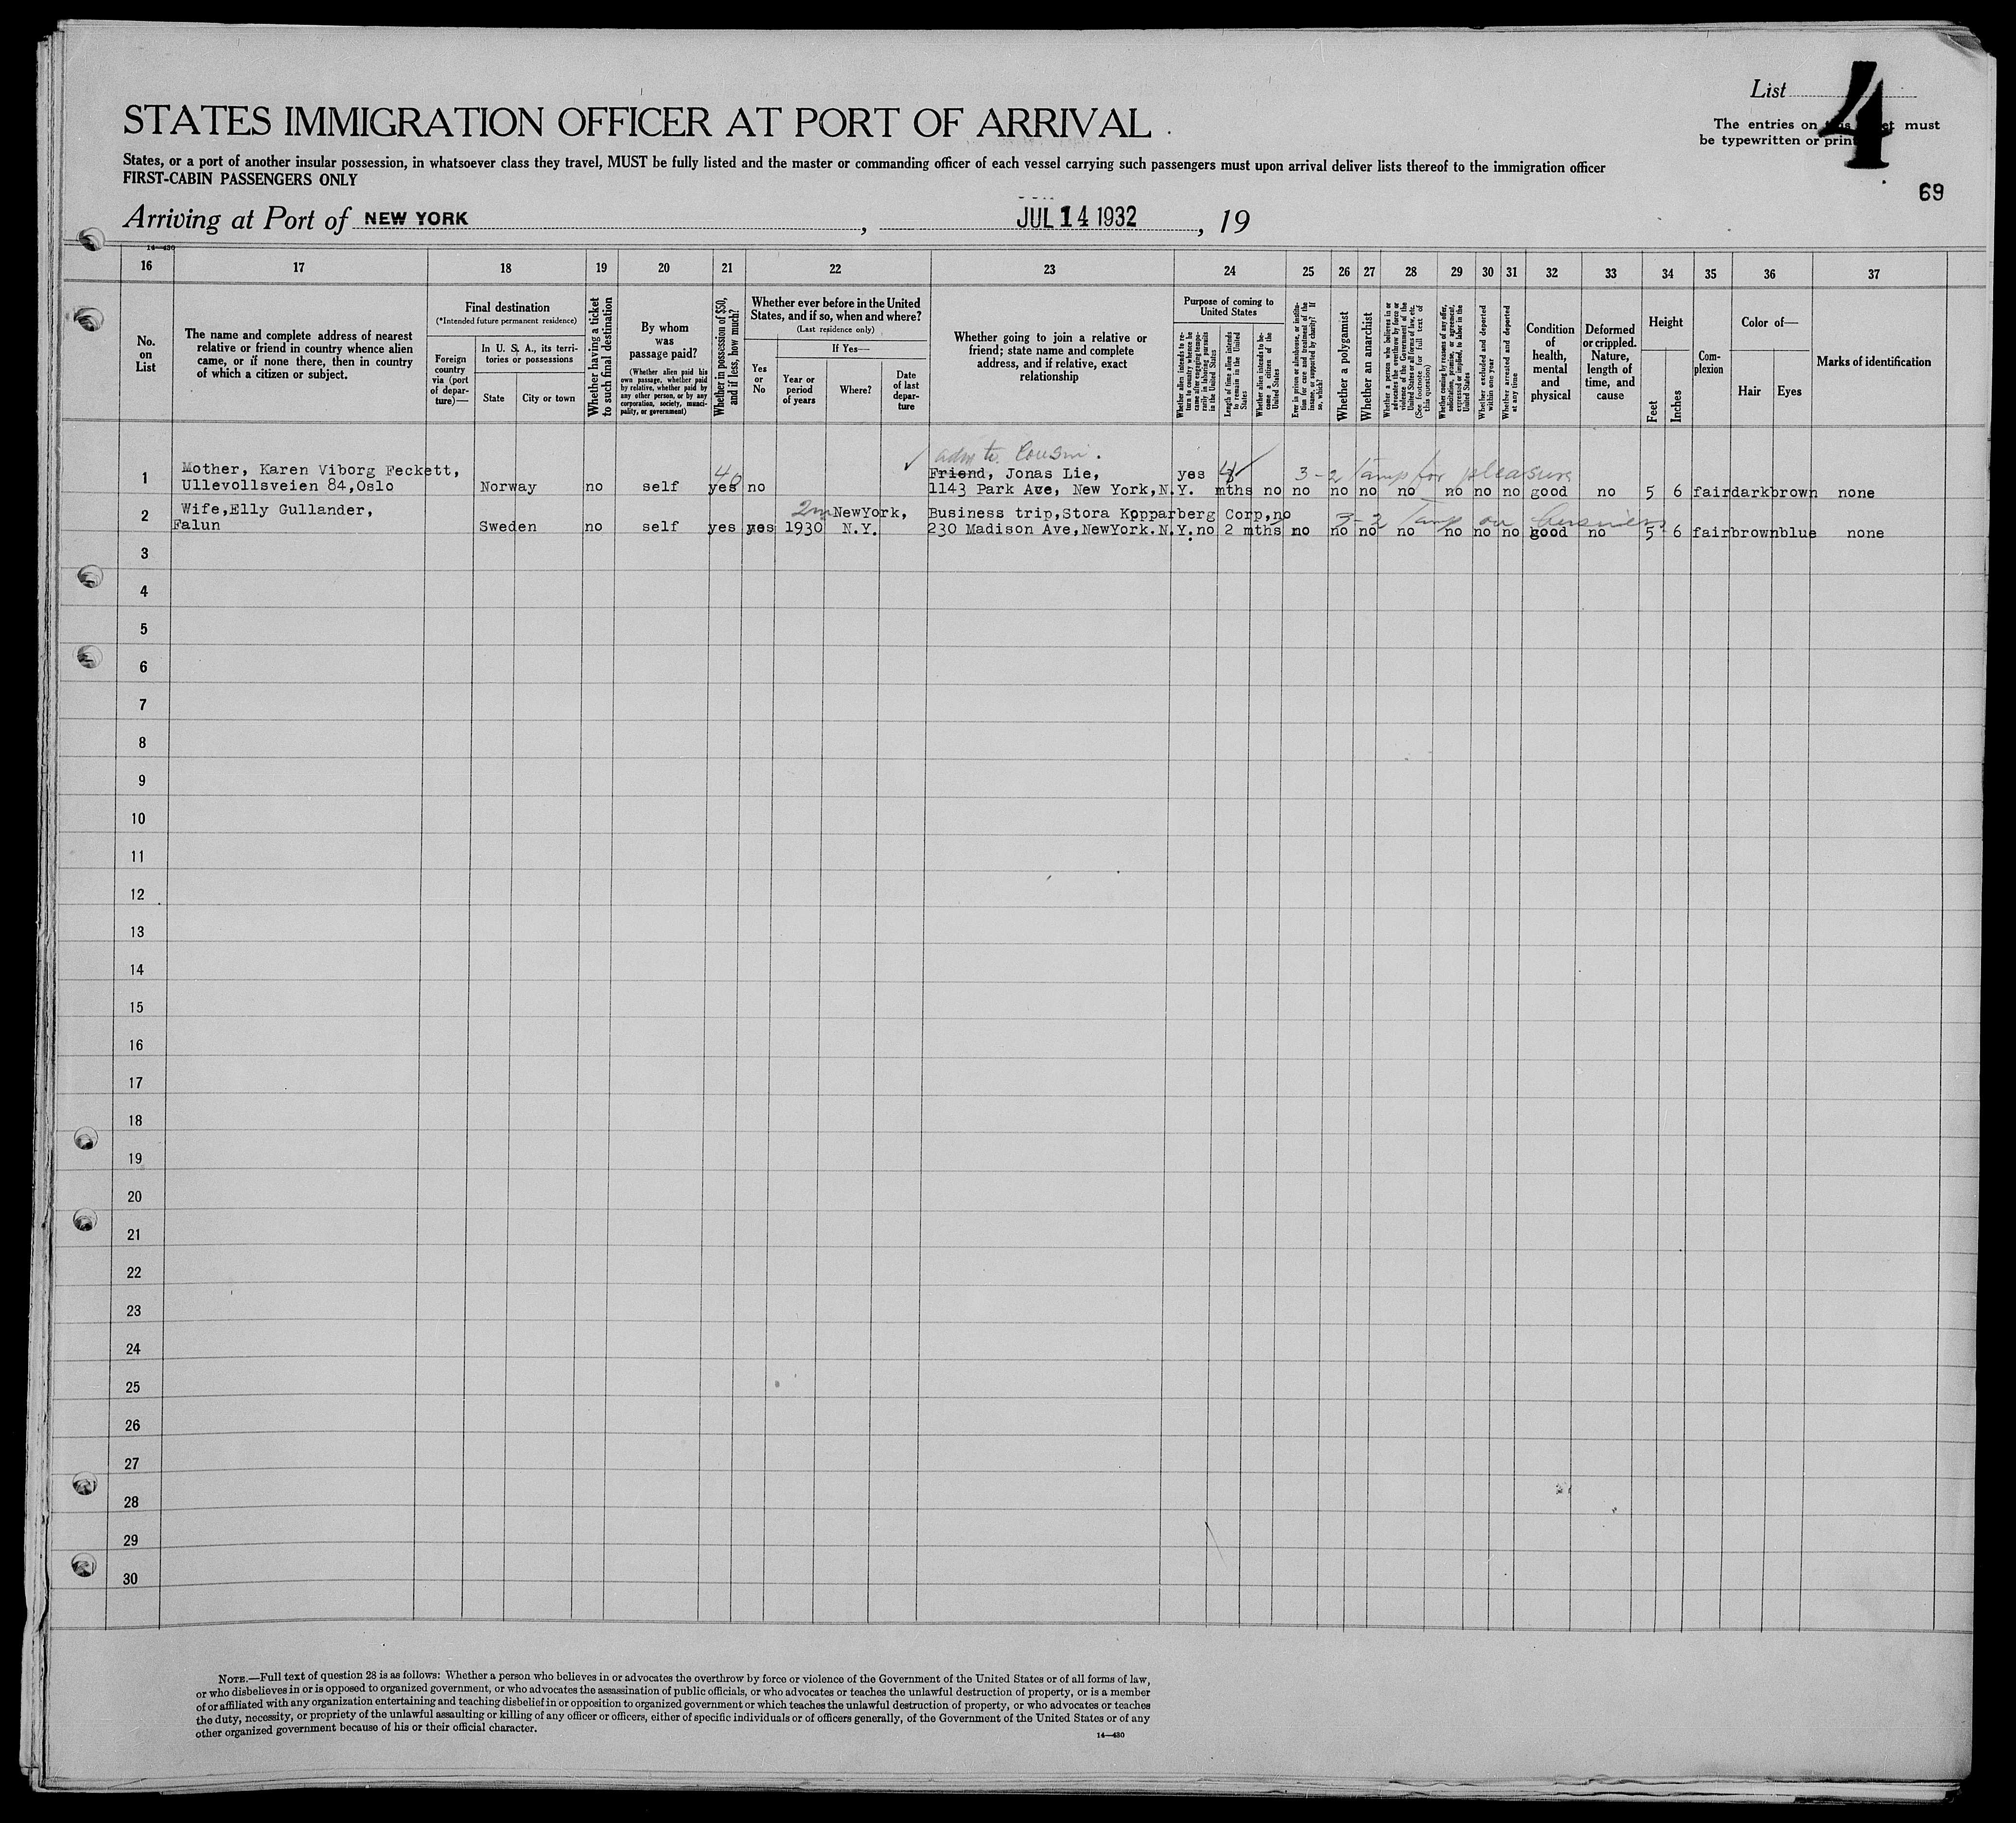 List 4
STATES IMMIGRATION OFFICER AT PORT OF ARRIVAL
The entries on this sheet must
be typewritten or printed
States, or a port of another insular possession, in whatsoever class they travel, MUST be fully listed and the master or commanding officer of each vessel carrying such passengers must upon arrival deliver lists thereof to the immigration officer
FIRST-CABIN PASSENGERS ONLY
69
Arriving at Port of NEW YORK, JUL 14 1932, 19
14—430
16 17 18 19 20 21 22 23 24 25 26 27 28 29 30 31 32 33 34 35 36 37
No. on List
The name and complete address of nearest
relative or friend in country whence alien
came, or if none there, then in country
of which a citizen or subject.
Final destination
(*Intended future permanent residence)
Foreign country via (port of departure)—
In U. S. A., its terri-
tories or possessions
State
City or town
Whether having a ticket
to such final destination
By whom
was
passage paid?
(Whether alien paid his
own passage, whether paid
by relative, whether paid by
any other person, or by any
corporation, society, munici-
pality, or government)
Whether in possession of $50,
and if less, how much?
Whether ever before in the United
States, and if so, when and where?
(Last residence only)
Yes or No
If Yes—
Year or period of years
Where?
Date of last depar-
ture
Whether going to join a relative or
friend; state name and complete
address, and if relative, exact
relationship
Purpose of coming to
United States
Whether alien intends to re-
turn to country whence he
came after engaging tempo-
rarily in laboring pursuits
in the United States
Length of time alien intends
to remain in the United
States
Whether alien intends to be-
come a citizen of the
United States
Ever in prison or almshouse, or institu-
tion for care and treatment of the
insane, or supported by charity? If
so, which?
Whether a polygamist
Whether an anarchist
Whether a person who believes in or
advocates the overthrow by force or
violence of the Government of the
United States or all forms of law, etc.
(See footnote for full text of
this question)
Whether coming by reasons of any offer,
solicitation, promise, or agreement,
expressed or implied, to labor in the
United States
Whether excluded and deported
within one year
Whether arrested and deported
at any time
Condition
of
health,
mental
and
physical
Deformed
or crippled.
Nature,
length of
time, and
cause
Height
Feet
Inches
Com-
plexion
Color of—
Hair
Eyes
Marks of identification
adm to Cousin.
1 Mother, Karen Viborg Feckett, 40 Friend, Jonas Lie, yes 4 3-2 Temp for pleasure
Ullevollsveien 84,Oslo Norway no self yes no 1143 Park Ave, New York,N.Y. mths no no no no no no no no good no 5 6 fair dark brown none
2 Wife,Elly Gullander, 2m NewYork, Business trip,Stora Kopparberg Corp,no 3-2 Temp on business
Falun Sweden no self yes yes 1930 N.Y. 230 Madison Ave,NewYork.N.Y. no 2 mths no no no no no no no good no 5 6 fair brown blue none
3
4
5
6
7
8
9
10
11
12
13
14
15
16
17
18
19
20
21
22
23
24
25
26
27
28
29
30
NOTE.—Full text of question 28 is as follows: Whether a person who believes in or advocates the overthrow by force or violence of the Government of the United States or of all forms of law,
or who disbelieves in or is opposed to organized government, or who advocates the assassination of public officials, or who advocates or teaches the unlawful destruction of property, or is a member
of or affiliated with any organization entertaining and teaching disbelief in or opposition to organized government or which teaches the unlawful destruction of property, or who advocates or teaches
the duty, necessity, or propriety of the unlawful assaulting or killing of any officer or officers, either of specific individuals or of officers generally, of the Government of the United States or of any
other organized government because of his or their official character.
14—430